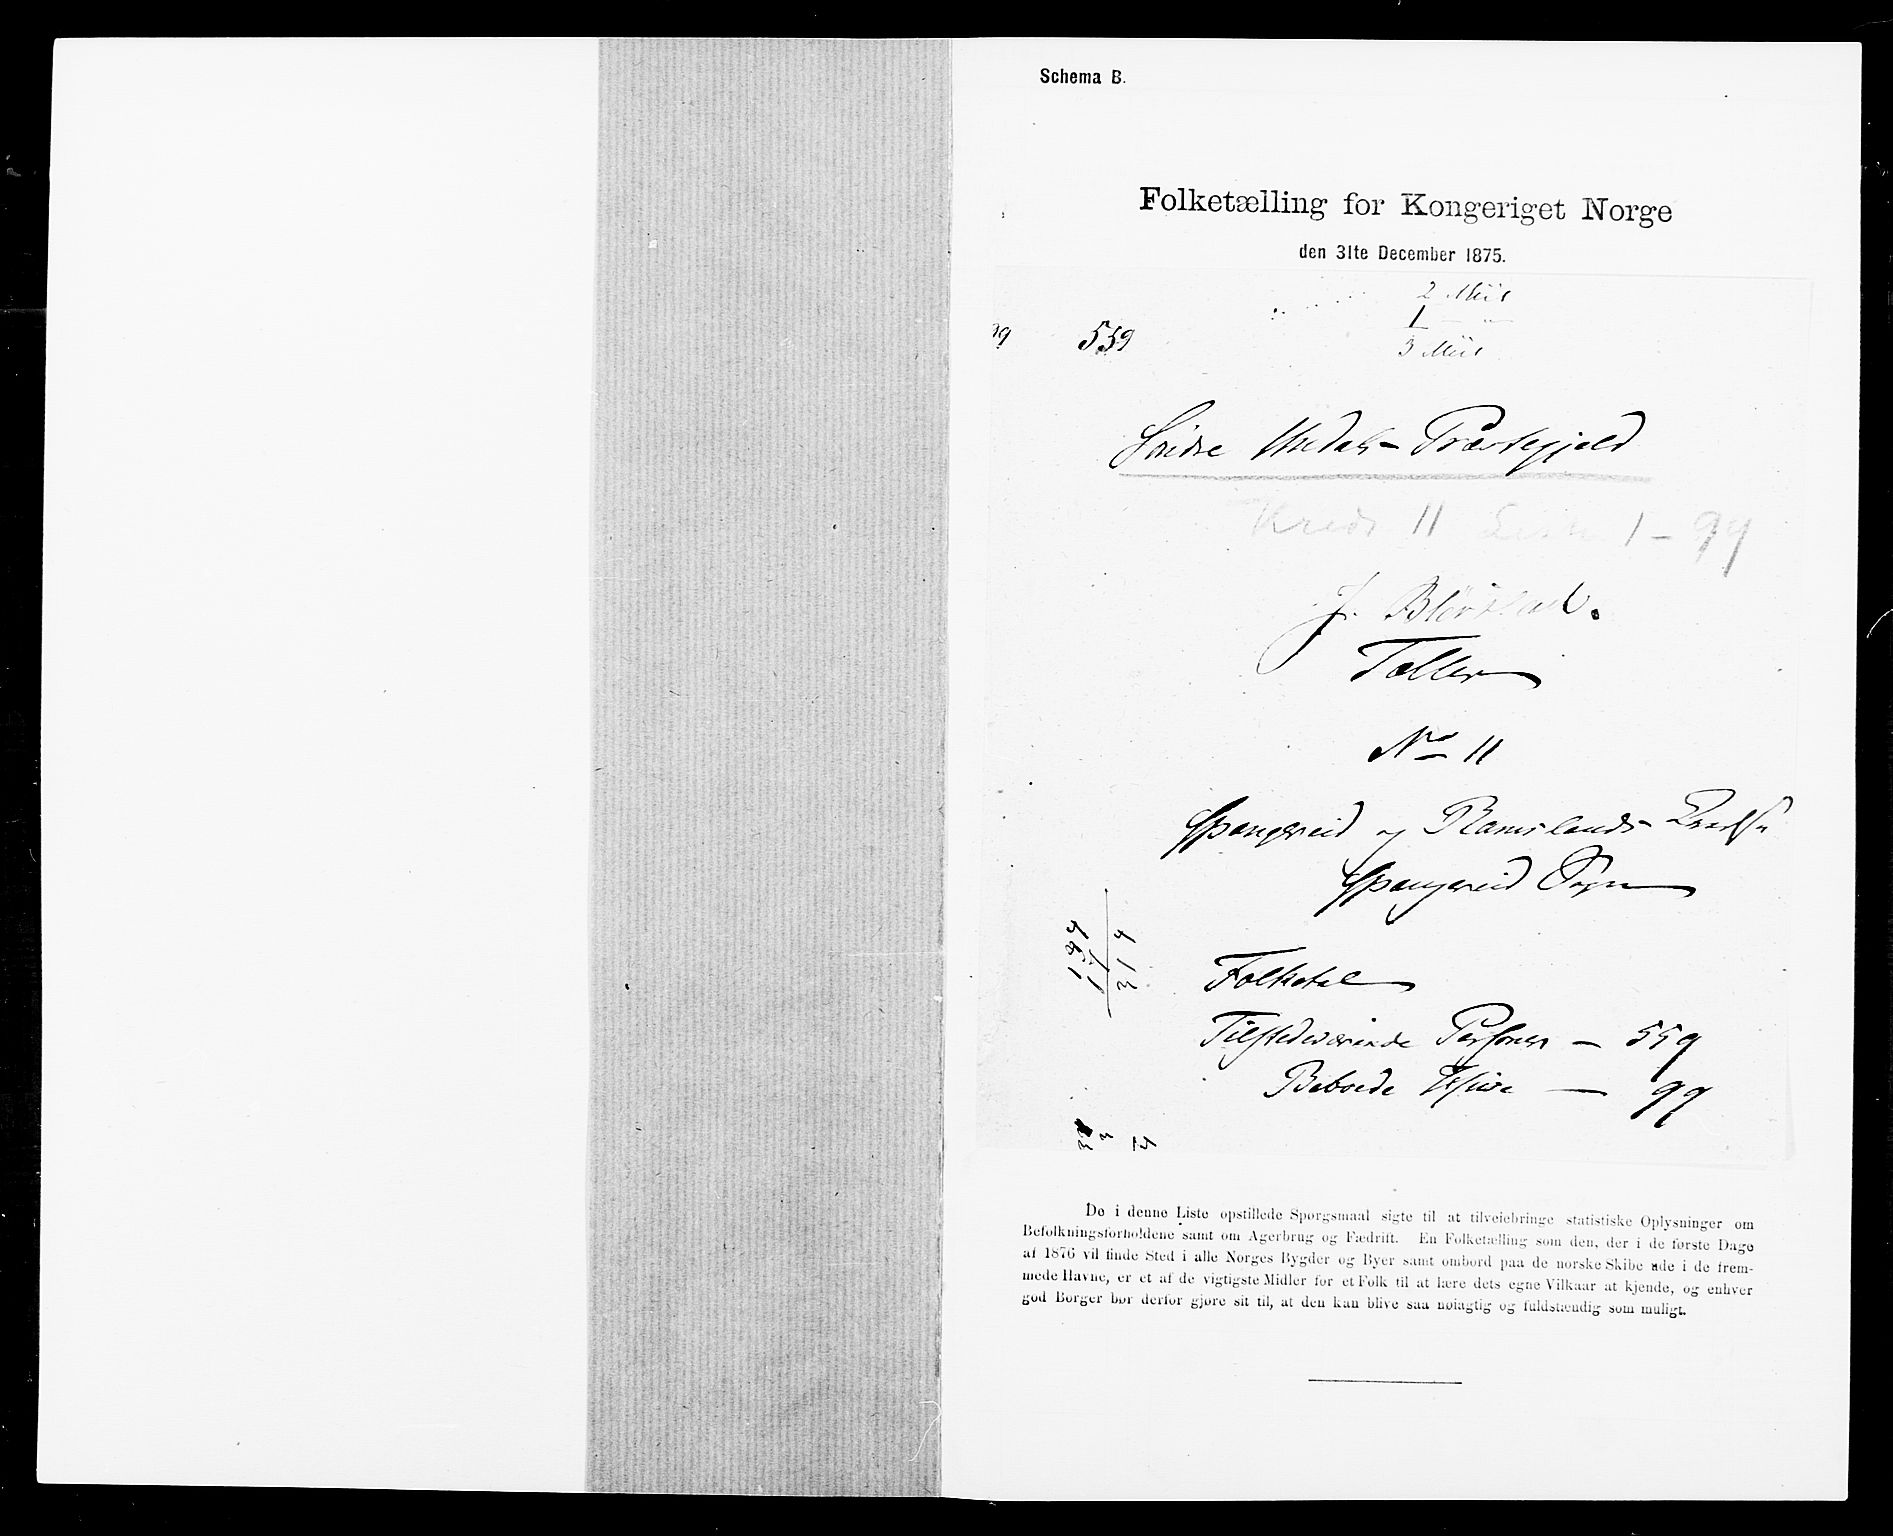 Schema B.
Folketælling for Kongeriget Norge
den 31te December 1875.
2 Mil
1 — "
99 559
3 Mil
Søndre Undals- Præstegjeld
Kreds 11 Liste 1 – 99
J.
Tæller
No 11
Spangereid og Ramslands-
Spangereid Sogn
199
314
Folketal
Tilstedeværende Personer — 559
Beboede Huse — 99
De i denne Liste opstillede Spørgsmaal sigte til at tilveiebringe statistiske Oplysninger om
Befolkningsforholdene samt om Agerbrug og Fædrift. En Folketælling som den, der i de første Dage
af 1876 vil finde Sted i alle Norges Bygder og Byer samt ombord paa de norske Skibe ude i de frem-
mede Havne, er et af de vigtigste Midler for et Folk til at lære dets egne Vilkaar at kjende, og enhver
god Borger bør derfor gjøre sit til, at den kan blive saa nøiagtig og fuldstændig som muligt.